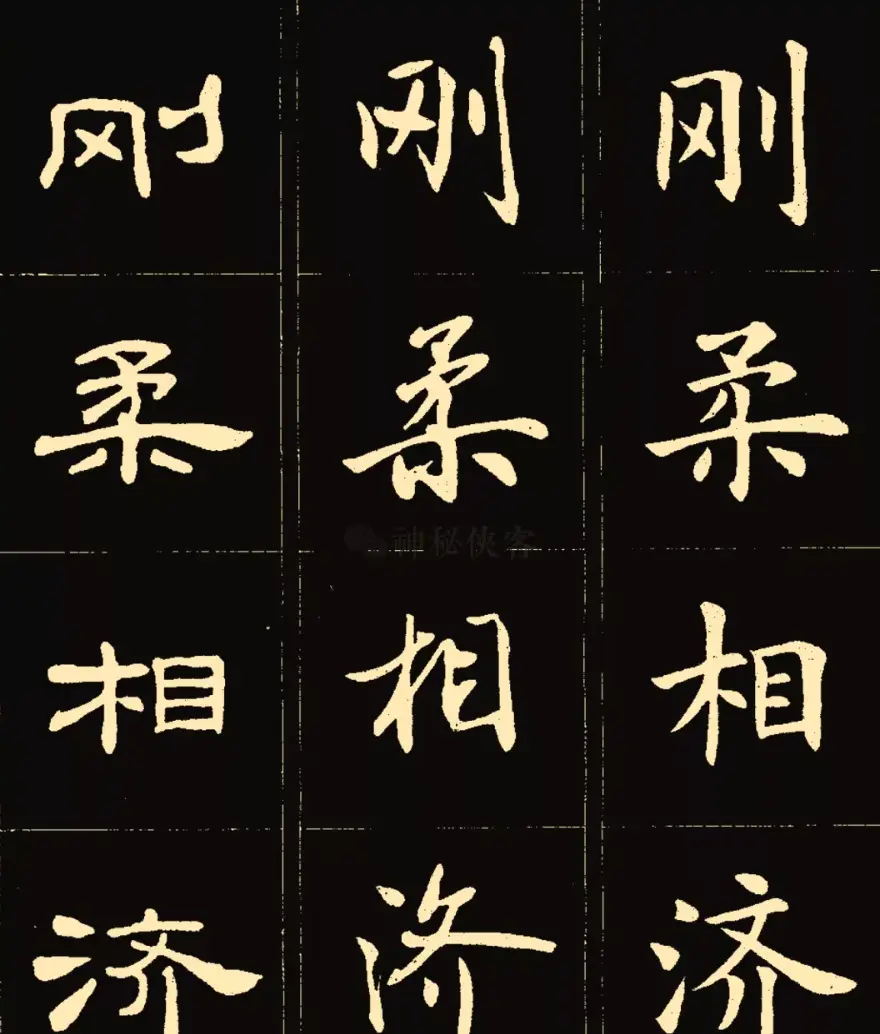 刚 刚 刚
柔 柔 柔
相 相 相
神秘侠客
济 济 济